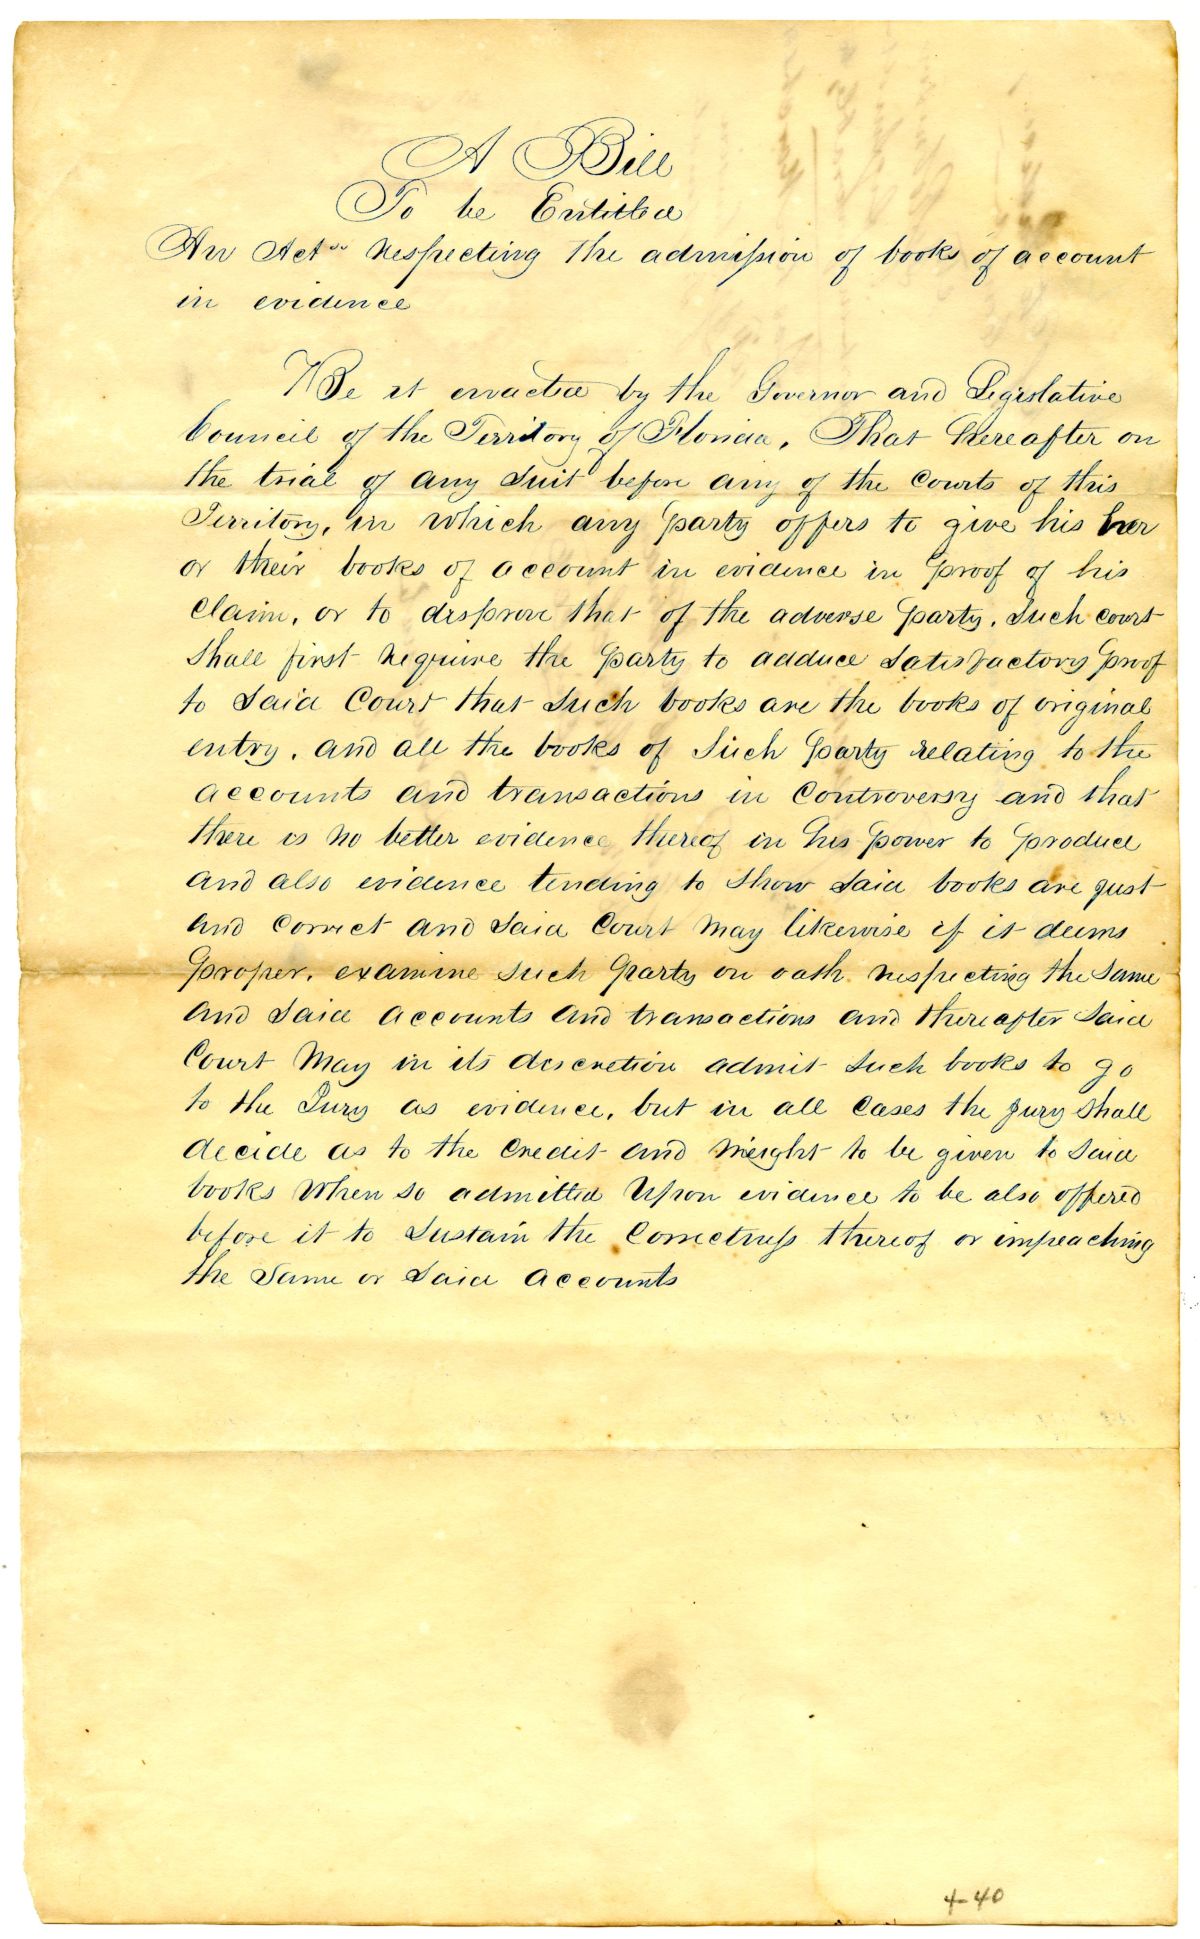 A Bill
To be Entitled
An Act respecting the admission of books of account
in evidence
Be it enacted by the Governor and Legislative
Council of the Territory of Florida, That hereafter on
the trial of any Suit before any of the Courts of this
Territory, in which any party offers to give his her
or their books of account in evidence in proof of his
Claim, or to disprove that of the adverse party, Such court
Shall first require the party to adduce Satisfactory proof
to Said Court that Such books are the books of original
entry, and all the books of Such party relating to the
accounts and transactions in Controversy and that
there is no better evidence thereof in his power to produce
and also evidence tending to Show Said books are just
and Correct and Said Court may likewise if it deems
proper, examine Such party on oath respecting the Same
and Said accounts and transactions and thereafter Said
Court May in its discretion admit Such books to go
to the Jury as evidence, but in all Cases the jury Shall
decide as to the Credit and Weight to be given to Said
books When So admitted Upon evidence to be also offered
before it to Sustain the Correctness thereof or impeaching
the Same or Said accounts
4-40